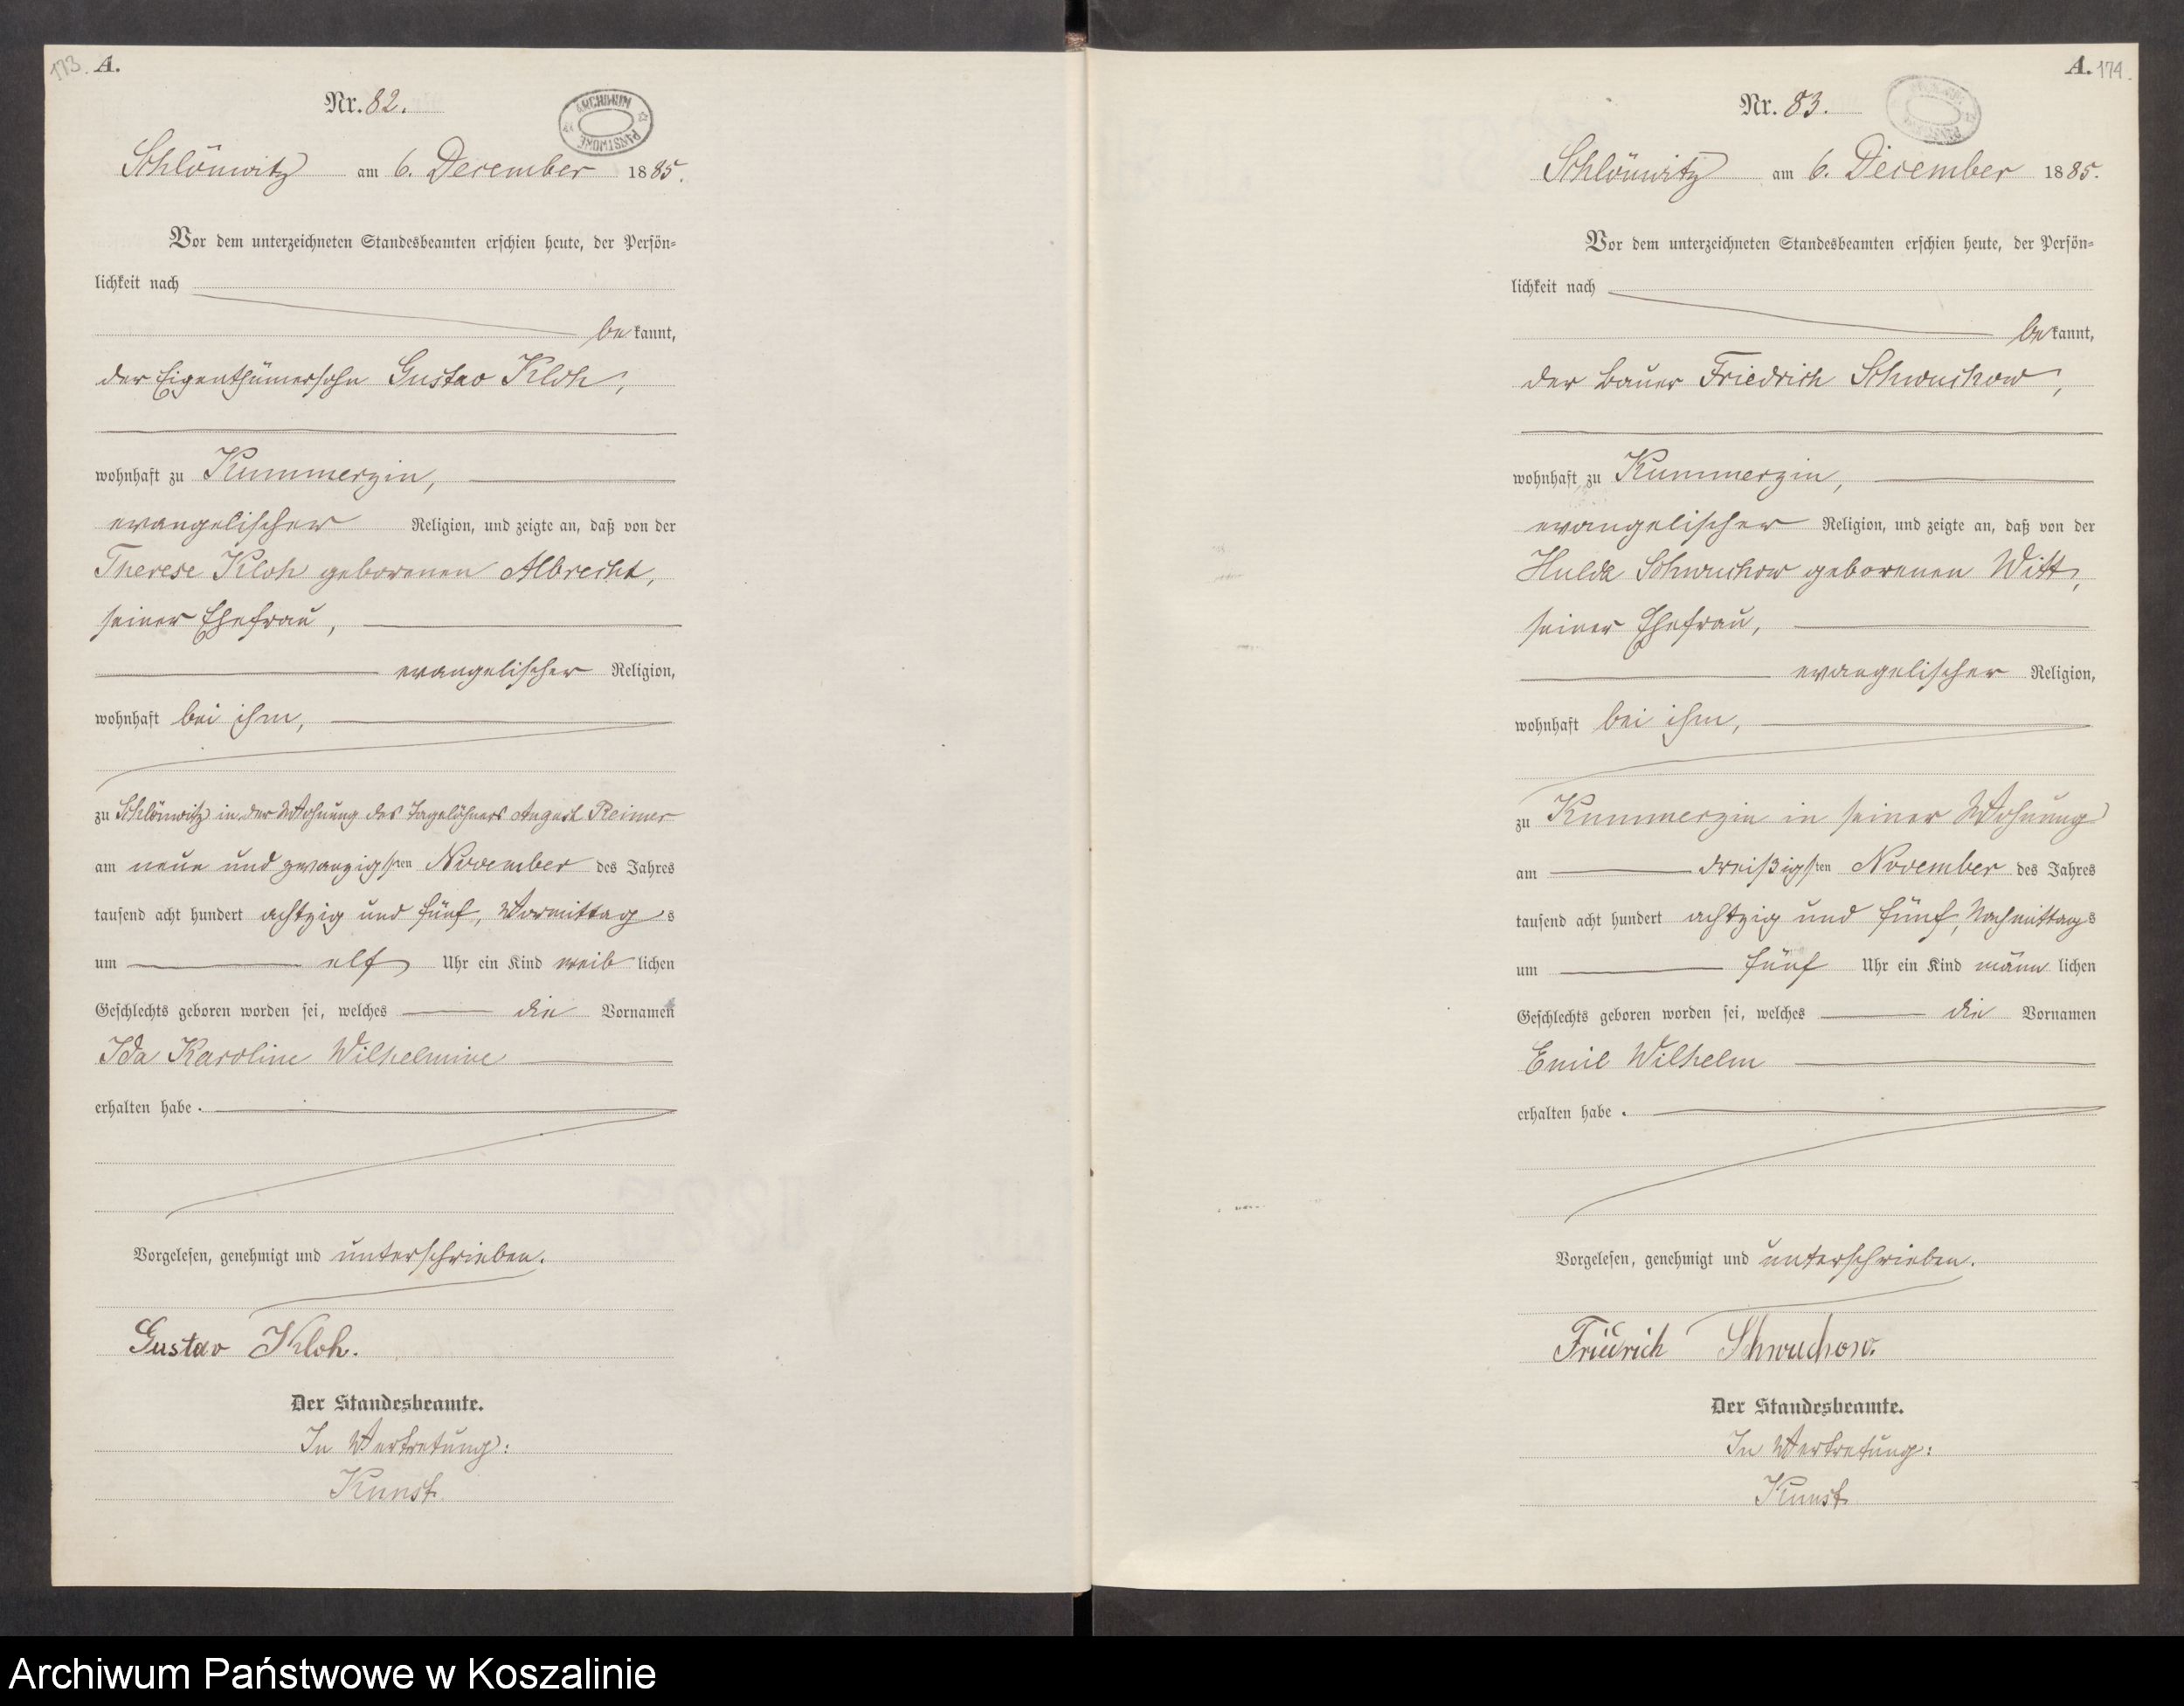 173. A.
Nr. 82.
ARCHIWUM PAŃSTWOWE
Schlönwitz am 6. December 1885.
Vor dem unterzeichneten Standesbeamten erschien heute, der Persön=
lichkeit nach
be kannt,
der Eigenthümersohn Gustav Kloh,
wohnhaft zu Kummerzin,
evangelischer Religion, und zeigte an, daß von der
Therese Kloh geborenen Albrecht,
seiner Ehefrau,
evangelischer Religion,
wohnhaft bei ihm,
zu Schlönwitz in der Wohnung des Tagelöhners August Reimer
am neun und zwanzigsten November des Jahres
tausend acht hundert achtzig und fünf, Vormittag s
um elf Uhr ein Kind weib lichen
Geschlechts geboren worden sei, welches die Vornamen
Ida Karoline Wilhelmine
erhalten habe.
Vorgelesen, genehmigt und unterschrieben.
Gustav Kloh.
Der Standesbeamte.
In Vertretung:
Kunst
A. 174.
Nr. 83.
Schlönwitz am 6. December 1885.
Vor dem unterzeichneten Standesbeamten erschien heute, der Persön=
lichkeit nach
be kannt,
der Bauer Friedrich Schwuchow,
wohnhaft zu Kummerzin,
evangelischer Religion, und zeigte an, daß von der
Hulda Schwuchow geborenen Witt,
seiner Ehefrau,
evangelischer Religion,
wohnhaft bei ihm,
zu Kummerzin in seiner Wohnung
am dreißigsten November des Jahres
tausend acht hundert achtzig und fünf, Nachmittags
um fünf Uhr ein Kind männ lichen
Geschlechts geboren worden sei, welches die Vornamen
Emil Wilhelm
erhalten habe.
Vorgelesen, genehmigt und unterschrieben.
Friedrich Schwuchow.
Der Standesbeamte.
In Vertretung:
Kunst
Archiwum Państwowe w Koszalinie